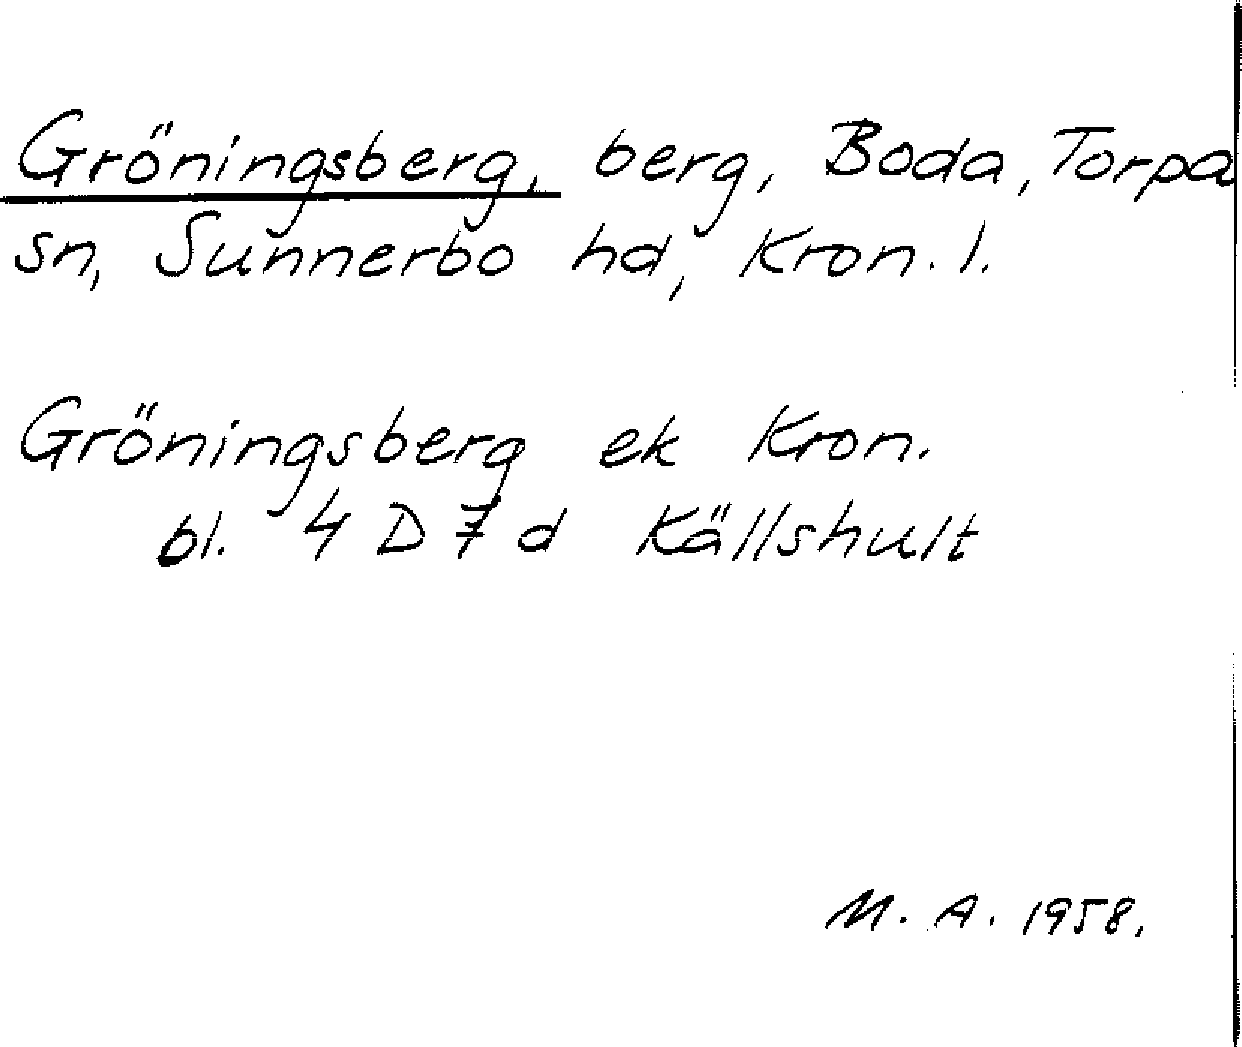 Gröningsberg, berg, Boda, Torpa
sn, Sunnerbo hd, Kron. l.
Gröningsberg ek Kron.
bl. 4 D 7 d Källshult
M. A. 1958.